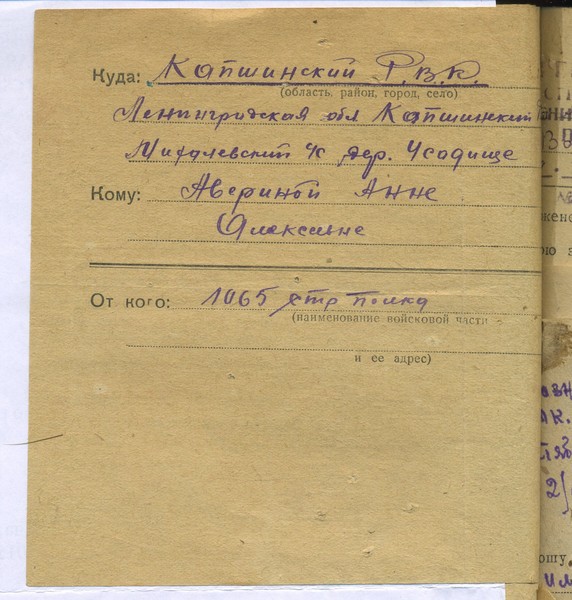 Куда: Капшинский Р.В.К.
(область, район, город, село)
Ленинградская обл Капшинский
Михалевский с/с дер. Усадище
Кому: Авериной Анне
Алексевне
От кого: 1065 стр полка
(наименование войсковой части
и ее адрес)